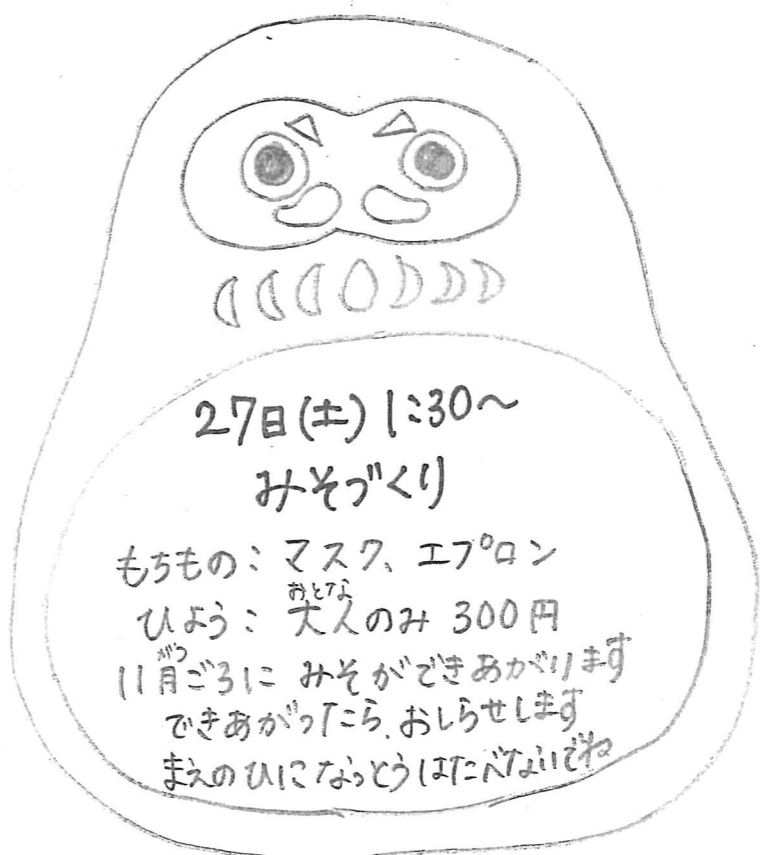 27日(土) 1:30～
みそづくり
もちもの: マスク、エプロン
ひよう: 大人のみ 300円
おとな
11月ごろに みそができあがります
がつ
できあがったら、おしらせします
まえのひになっとうはたべないでね